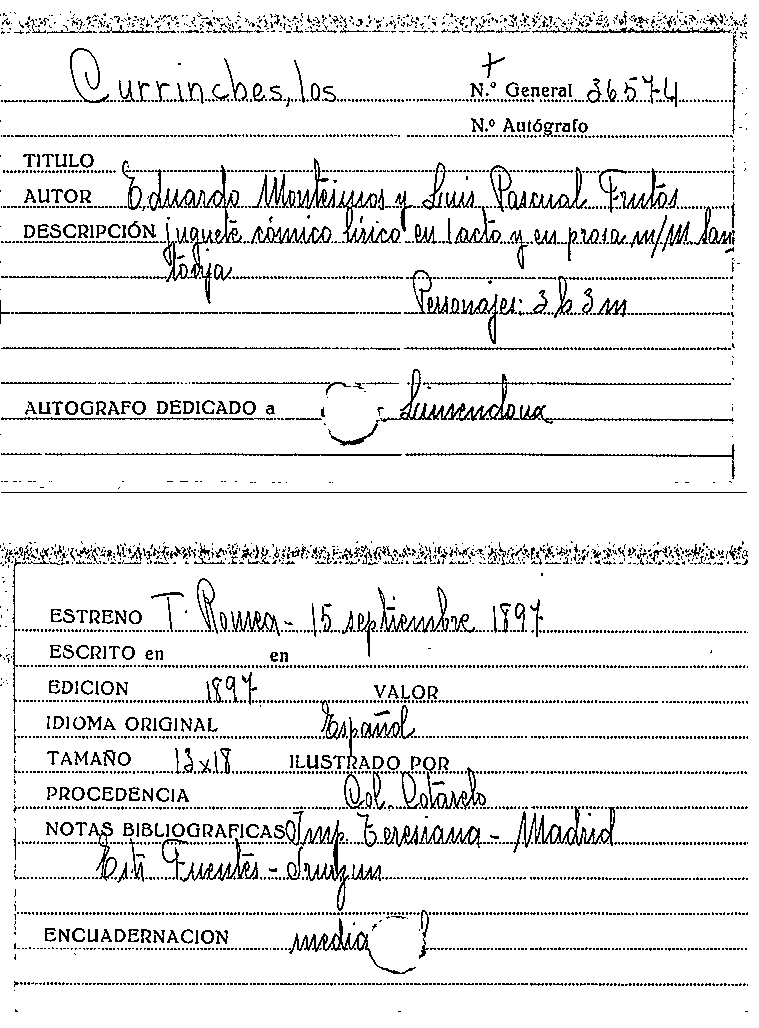 Currinches, los
N.º General 36574
N.º Autógrafo
TITULO
AUTOR Eduardo Montesinos y Luis Pascual Frutos
DESCRIPCIÓN juguete cómico lírico en 1 acto y en prosa m/M San
Personajes: 3 h 3 m
AUTOGRAFO DEDICADO a
ESTRENO T. Romea - 15 septiembre 1897
ESCRITO en en
EDICION 1897 VALOR
IDIOMA ORIGINAL Español
TAMAÑO 13x18 ILUSTRADO POR
PROCEDENCIA Col. Cotarelo
NOTAS BIBLIOGRAFICAS Imp Teresiana - Madrid
Estr Fuentes -
ENCUADERNACION media